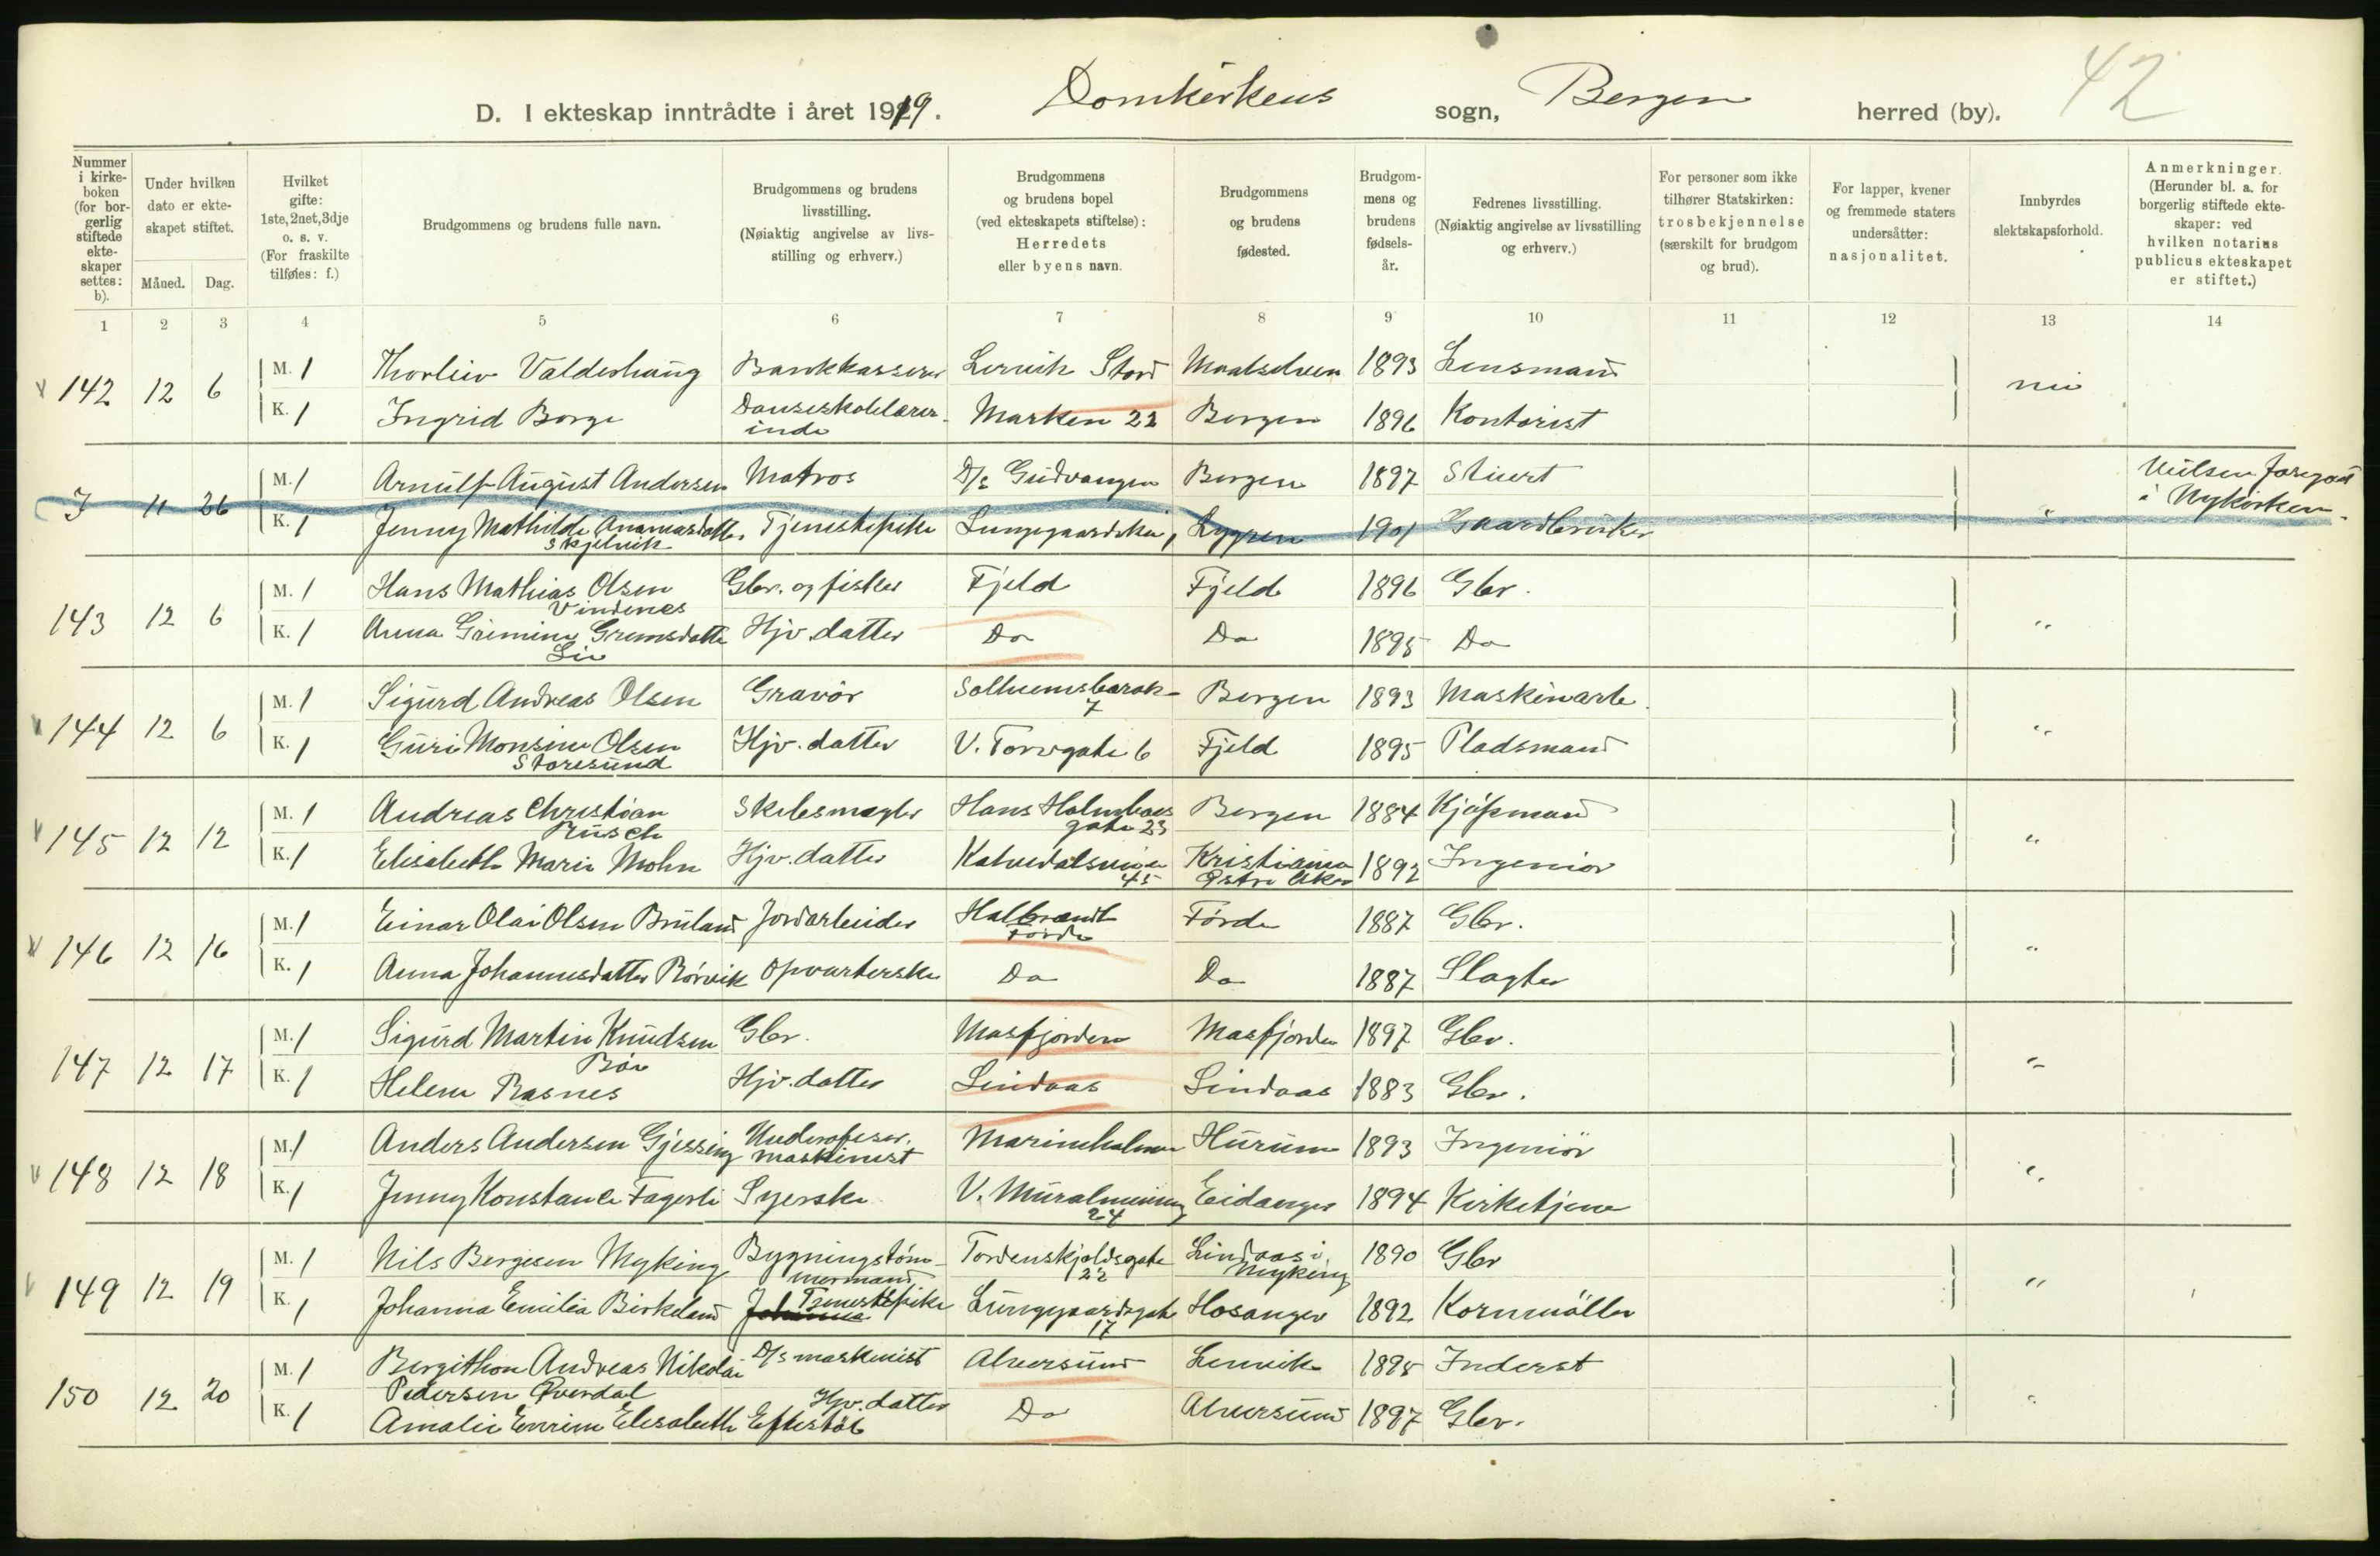 42
D. I ekteskap inntrådte i året 1919. Domkirkens sogn, Bergen herred (by).
Nummer i kirke-boken (for bor-gerlig stiftede ekte-skaper settes: b).
Under hvilken dato er ekte-skapet stiftet.
Måned. Dag.
Hvilket gifte: 1ste, 2net, 3dje o. s. v. (For fraskilte tilføies: f.)
Brudgommens og brudens fulle navn.
Brudgommens og brudens livsstilling. (Nøiaktig angivelse av livs-stilling og erhverv.)
Brudgommens og brudens bopel (ved ekteskapets stiftelse): Herredets eller byens navn.
Brudgommens og brudens fødested.
Brudgom-mens og brudens fødsels-år.
Fedrenes livsstilling. (Nøiaktig angivelse av livsstilling og erhverv.)
For personer som ikke tilhører Statskirken: trosbekjennelse (særskilt for brudgom og brud).
For lapper, kvener og fremmede staters undersåtter: nasjonalitet.
Innbyrdes slektskapsforhold.
Anmerkninger. (Herunder bl. a. for borgerlig stiftede ekte-skaper: ved hvilken notarius publicus ekteskapet er stiftet.)
1 2 3 4 5 6 7 8 9 10 11 12 13 14
142 12 6 M. 1 Thorleiv Valderhaug Bankkasserer Lervik Stord Maalselven 1893 Lensmand nei
K. 1 Ingrid Borge Danseskolelærer-inde Marken 22 Bergen 1896 Kontorist
I 11 26 M. 1 Arnulf August Andersen Matros D/s Gudvangen Bergen 1897 Stuert " i Nykirken
K. 1 Jenny Mathilde Ananiasdatter Skjelvik Tjenestepike Lygren 1901 Gaardbruker
143 12 6 M. 1 Hans Mathias Olsen Vindenes Gbr. og fisker Fjeld Fjeld 1896 Gbr. "
K. 1 Anna Grimine Grimsdatter Lie Hjv. datter Do Do 1895 Do
144 12 6 M. 1 Sigurd Andreas Olsen Gravør Solheimsbarak 7 Bergen 1893 Maskinarb. "
K. 1 Guri Monsine Olsen Storesund Hjv. datter V. Torvgate 6 Fjeld 1895 Pladsmand
145 12 12 M. 1 Andreas Christian Rusch Skibsmægler Hans Holmboes gate 23 Bergen 1884 Kjøpmand "
K. 1 Elisabeth Marie Mohn Hjv. datter Kalvedalsveien 45 Kristiania Østre Aker 1892 Ingeniør
146 12 16 M. 1 Einar Olai Olsen Bruland Jordarbeider Halbrendt Førde Førde 1887 Gbr. "
K. 1 Anna Johannesdatter Rørvik Opvarterske Do Do 1887 Slagter
147 12 17 M. 1 Sigurd Martin Knudsen Bøe Gbr. Masfjorden Masfjorden 1897 Gbr. "
K. 1 Helene Risnes Hjv. datter Lindaas Lindaas 1883 Gbr.
148 12 18 M. 1 Anders Andersen Gjessing Underofficer. maskinist Marineholmen Hurum 1893 Ingeniør "
K. 1 Jenny Konstance Fagerli Syerske V. Muralmening 24 Eidanger 1894 Kirketjener
149 12 19 M. 1 Nils Bergesen Myking Bygningstøm-mermand Tordenskjoldsgate 22 Lindaas i Myking 1890 Gbr "
K. 1 Johanna Emilia Birkeland Johanna Tjenestepike Lungegaardsgate 17 Hosanger 1892 Kornmøller
150 12 20 M. 1 Bergithon Andreas Nikolai Pedersen Qverdal D/s maskinist Alversund Lenvik 1895 Inderst "
K. 1 Amalie Enrine Elisabeth Eftestøl Hjv. datter Do Alversund 1897 Gbr.